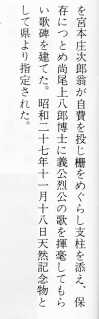 を宮本庄次郎翁が自費を投じ柵をめぐらし支柱を添え、保
存につとめ尚尾上八郎博士に義公烈公の歌を揮毫してもら
い歌碑を建てた。昭和二十七年十一月十八日天然記念物と
して県より指定された。